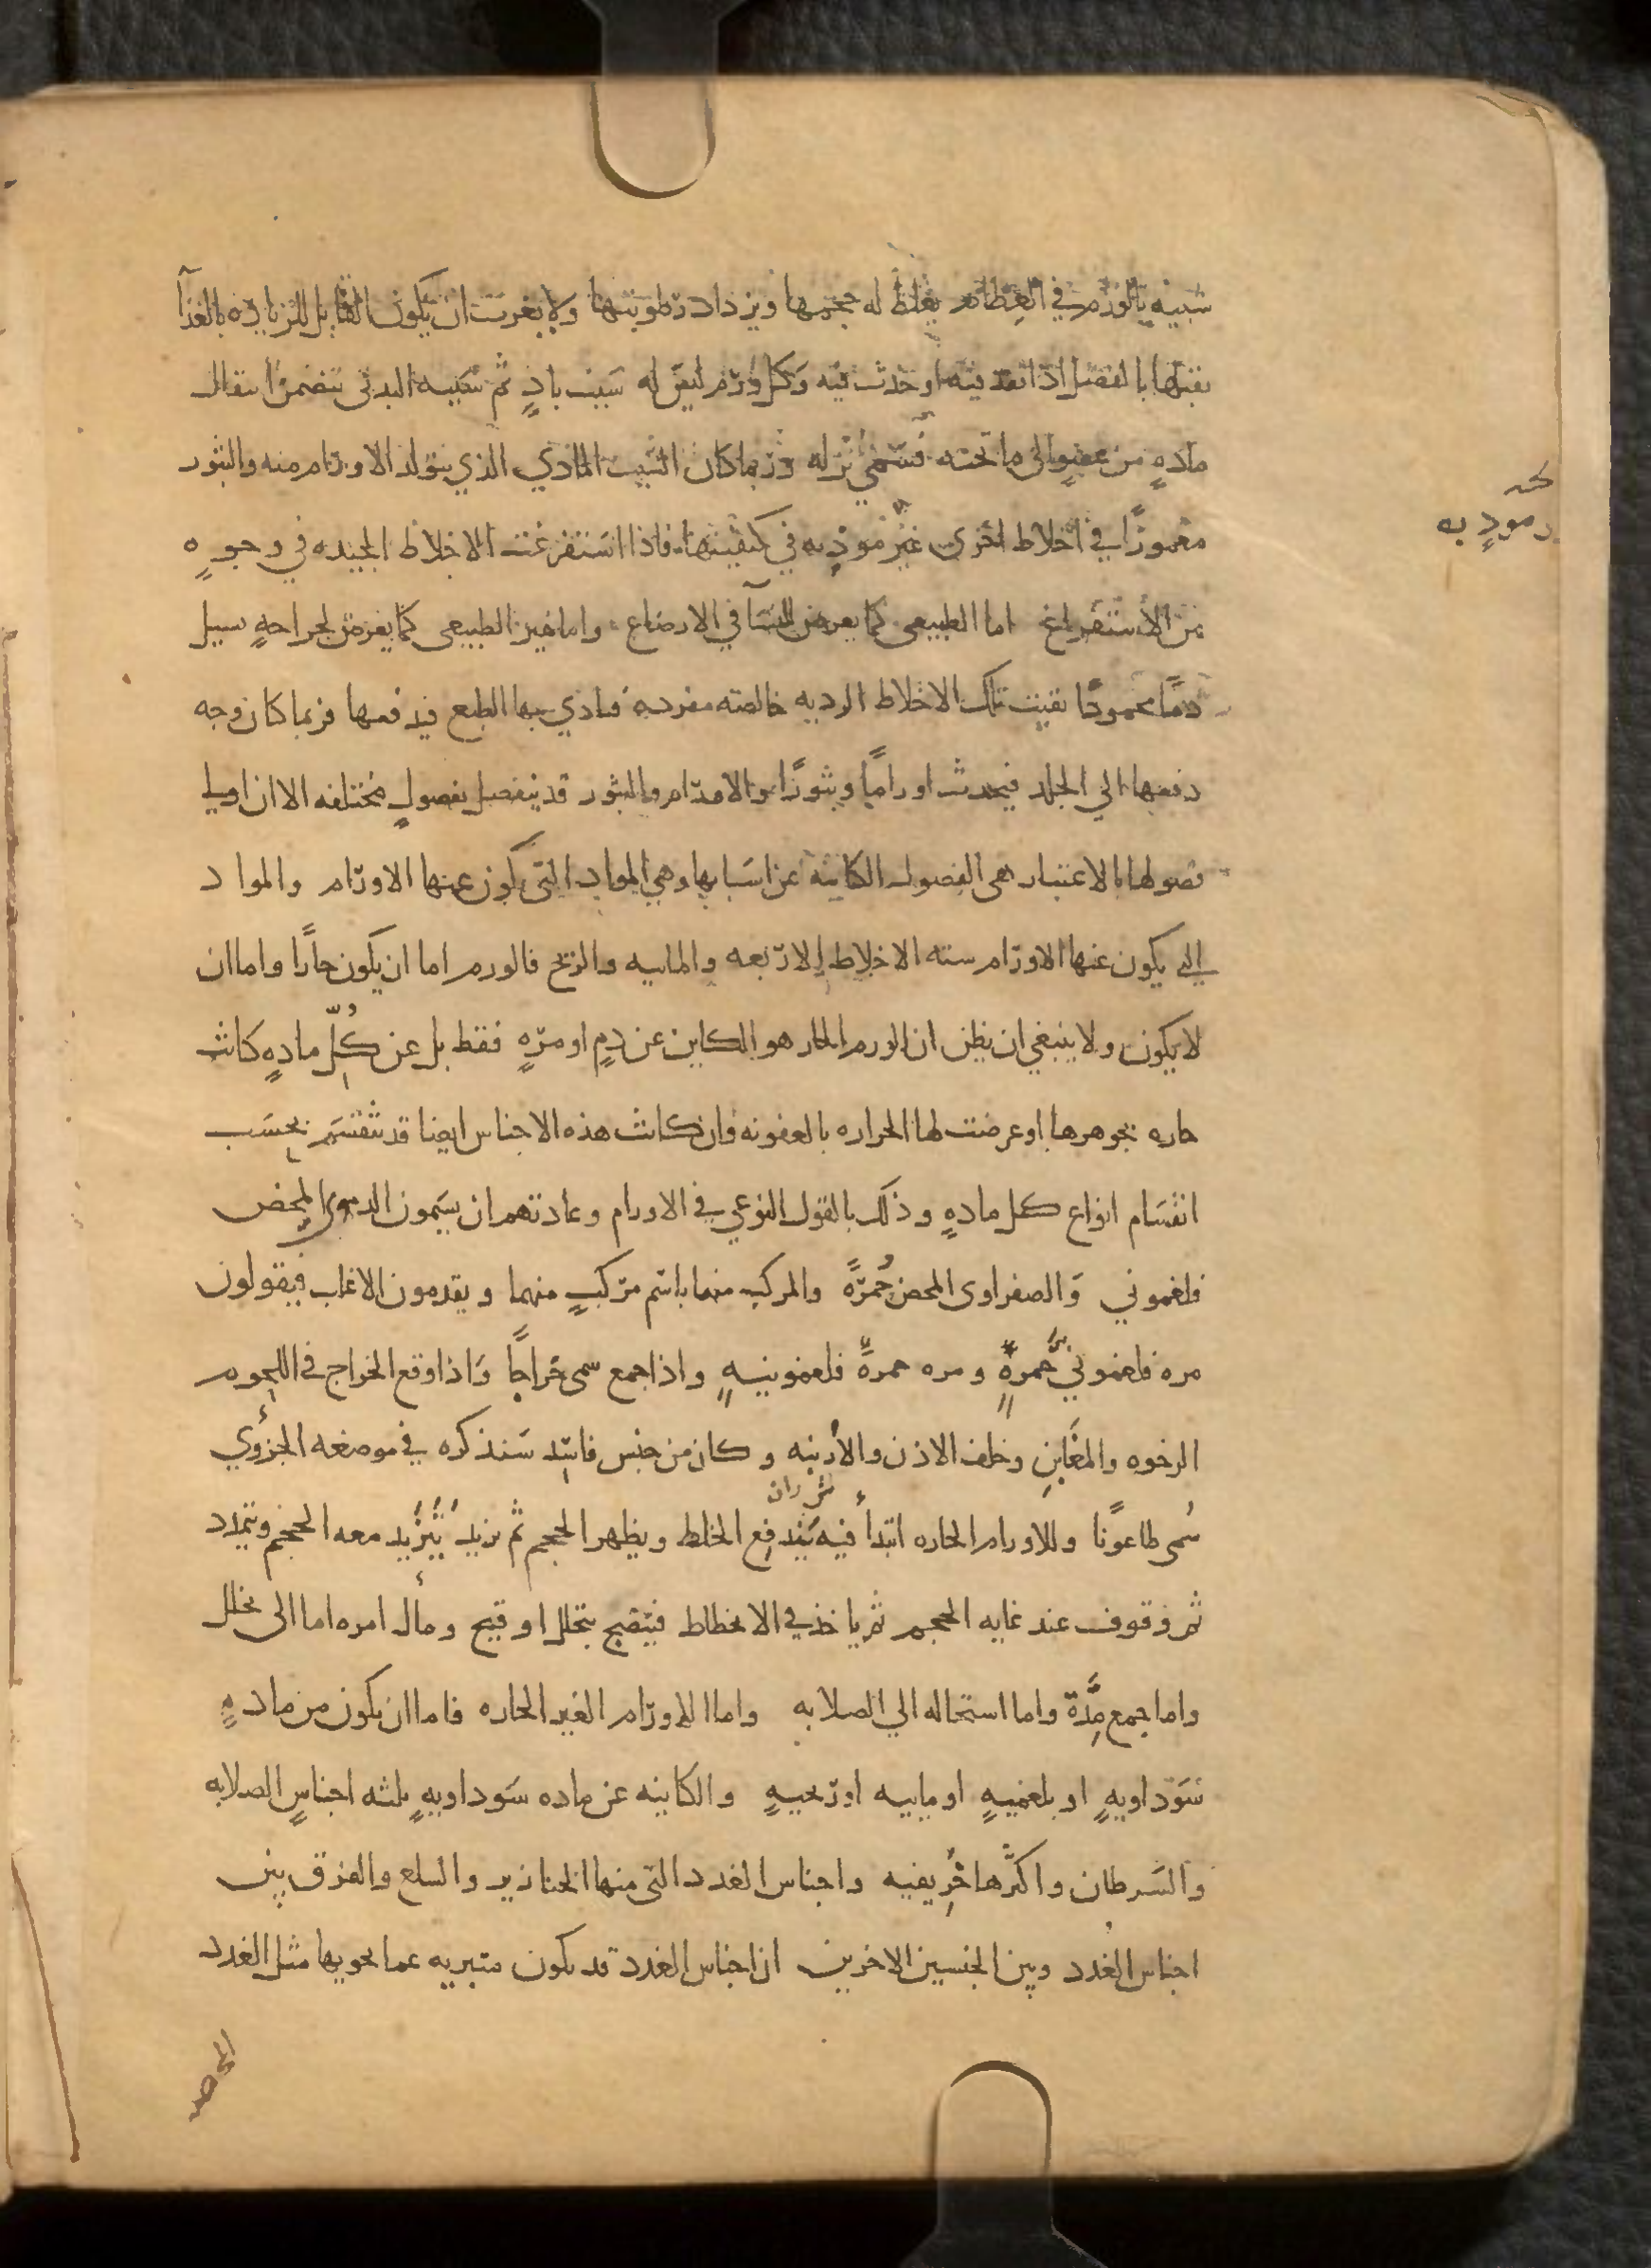 شبيه بالورم في العظام يغلظ له حجمها ويزداد رطوبتها ولا يغرب ان يكون القابل للزيادة بالغذآ
يقبلها بالفضل اذا نفذ فيه او حدث فيه وكل ورم ليس له سبب بادٍ ثم سببه البدني يتضمن انتقال
مادةٍ من عضوٍ الى ما تحته فسمى نزله وربما كان السبب المادي الذي يتولد الاورام منه والبثور
مغمورًا في اخلاط اخرى غير موذيه في كيفيتها فاذا استفرغت الاخلاط الجيده في وجوهٍ
من الاستفراغ اما الطبيعى كما يعرض للنسآ في الارضاع واما غير الطبيعى كما يعرض لجراحهٍ تسيل
دمًا محمودًا بقيت تلك الاخلاط الرديه خالصه مفرده فتاذي بها الطبع فيدفعها فربما كان وجه
دفعها الي الجلد فيحدث اورامًا وبثورًا والاورام والبثور قد ينفصل بفصولٍ مختلفه الا ان اولى
فصولها بالاعتبار هى الفصول الكاينه عن اسبابها وهي المواد التى يكون عنها الاورام والمواد
التي يكون عنها الاورام سته الاخلاط الاربعه والماييه والريح فالورم اما ان يكون حارًا واما ان
لا يكون ولا ينبغي ان يظن ان الورم الحار هو الكاين عن دمٍ او مرهٍ فقط بل عن كُلِّ مادهٍ كانت
حاره بجوهرها او عرضت لها الحراره بالعفونه وان كانت هذه الاجناس ايضا قد تنقسم بحسب
انقسام انواع كل مادهٍ وذلك بالقول النوعي في الاورام وعادتهم ان يسمون الدموى المحض
فلغموني والصفراوى المحض حُمرًة والمركب منهما باسم مركبٍ منهما ويقدمون الاغلب فيقولون
مره فلغموني حمرةٍ ومره حمرةً فلغمونيهٍ واذا جمع سمى خراجًا واذا وقع الخراج في اللحوم
الرخوه والمغابنِ وخلف الاذن والأرنبه وكان من جنس فاسد سنذكره في موضعه الجزؤي
سُمى طاعونًا وللاورام الحاره ابتدأ فيه يندفع الخلط ويظهر الحجم ثم يزيد يتزيد معه الحجم ويتمدد
ثم وقوف عند غايه الحجم ثم ياخذ في الانحطاط فينضج بتحلل او قيح ومأل امره اما الى تحلل
واما جمع مِدَّة واما استحاله الي الصلابه واما الاورام الغير الحاره فاما ان يكون من مادهٍ
سوداويهٍ او بلغميهٍ او ماييه او ريحيهٍ والكاينه عن ماده سوداويهٍ ثلثه اجناسٍ الصلابه
والسرطان واكثرها خريفيه واجناس الغدد التى منها الخنازير والسلع والفرق بين
اجناس الغدد وبين الجنسين الاخرين ان اجناس الغدد قد يكون متبريه عما يحويها مثل الغدد